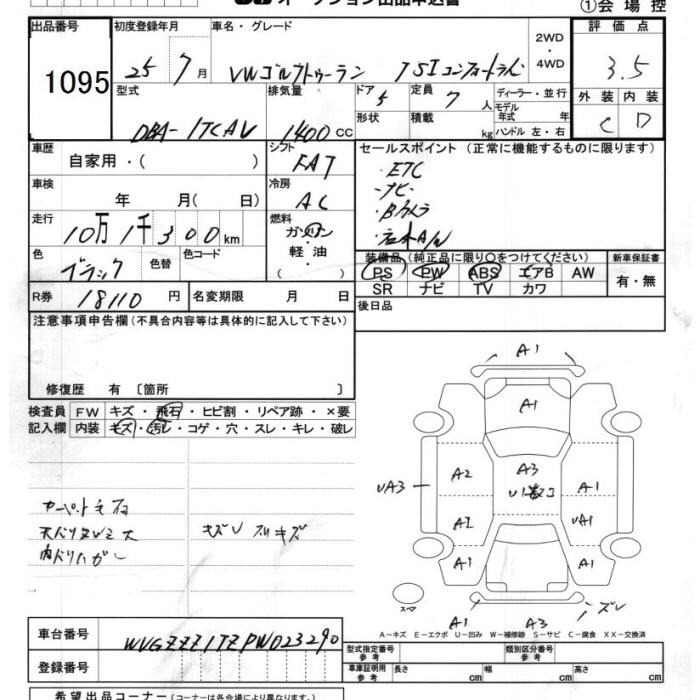 オークション出品申込書
①会場控
出品番号 初度登録年月 車名・グレード 2WD・4WD 評価点
1095 25年7月 VWゴルフトゥーラン TSIコンフォートライン 3.5
型式 排気量 ドア 定員 ディーラー・並行 外装 内装
DBA-1TCAV 1400cc 5 7人 モデル年式 年 C D
形状 積載 kg ハンドル 左・右
車歴 シフト セールスポイント (正常に機能するものに限ります)
自家用・( ) FAT ・ETC
車検 年 月( 日) 冷房 AC ・ナビ
走行 10万1千300km 燃料 ガソリン ・Bカメラ
色 ブラック 色替 色コード 軽・油 ( )
装備品(純正品に限り〇をつけてください) 新車保証書
PS PW ABS エアB AW 有・無
SR ナビ TV カワ
R券 18110円 名変期限 月 日 後日品
注意事項申告欄(不具合内容等は具体的に記入して下さい)
修復歴 有 〔箇所 〕
検査員 FW キズ・飛石・ヒビ割・リペア跡・×要
記入欄 内装 キズ・汚レ・コゲ・穴・スレ・キレ・破レ
A1
A1
A2 A3 A1
UA3
A1 UA1
A1 A1
スペア
A1 A3
A-キズ E-エクボ U-凹み W-補修跡 S-サビ C-腐食 XX-交換済
車台番号 WVGZZZ1TZPW023290
型式指定番号 参考 類別区分番号 参考
登録番号 車庫証明用 参考 長さ cm 幅 cm 高さ cm
希望出品コーナー(コーナーは各会場により異なります)